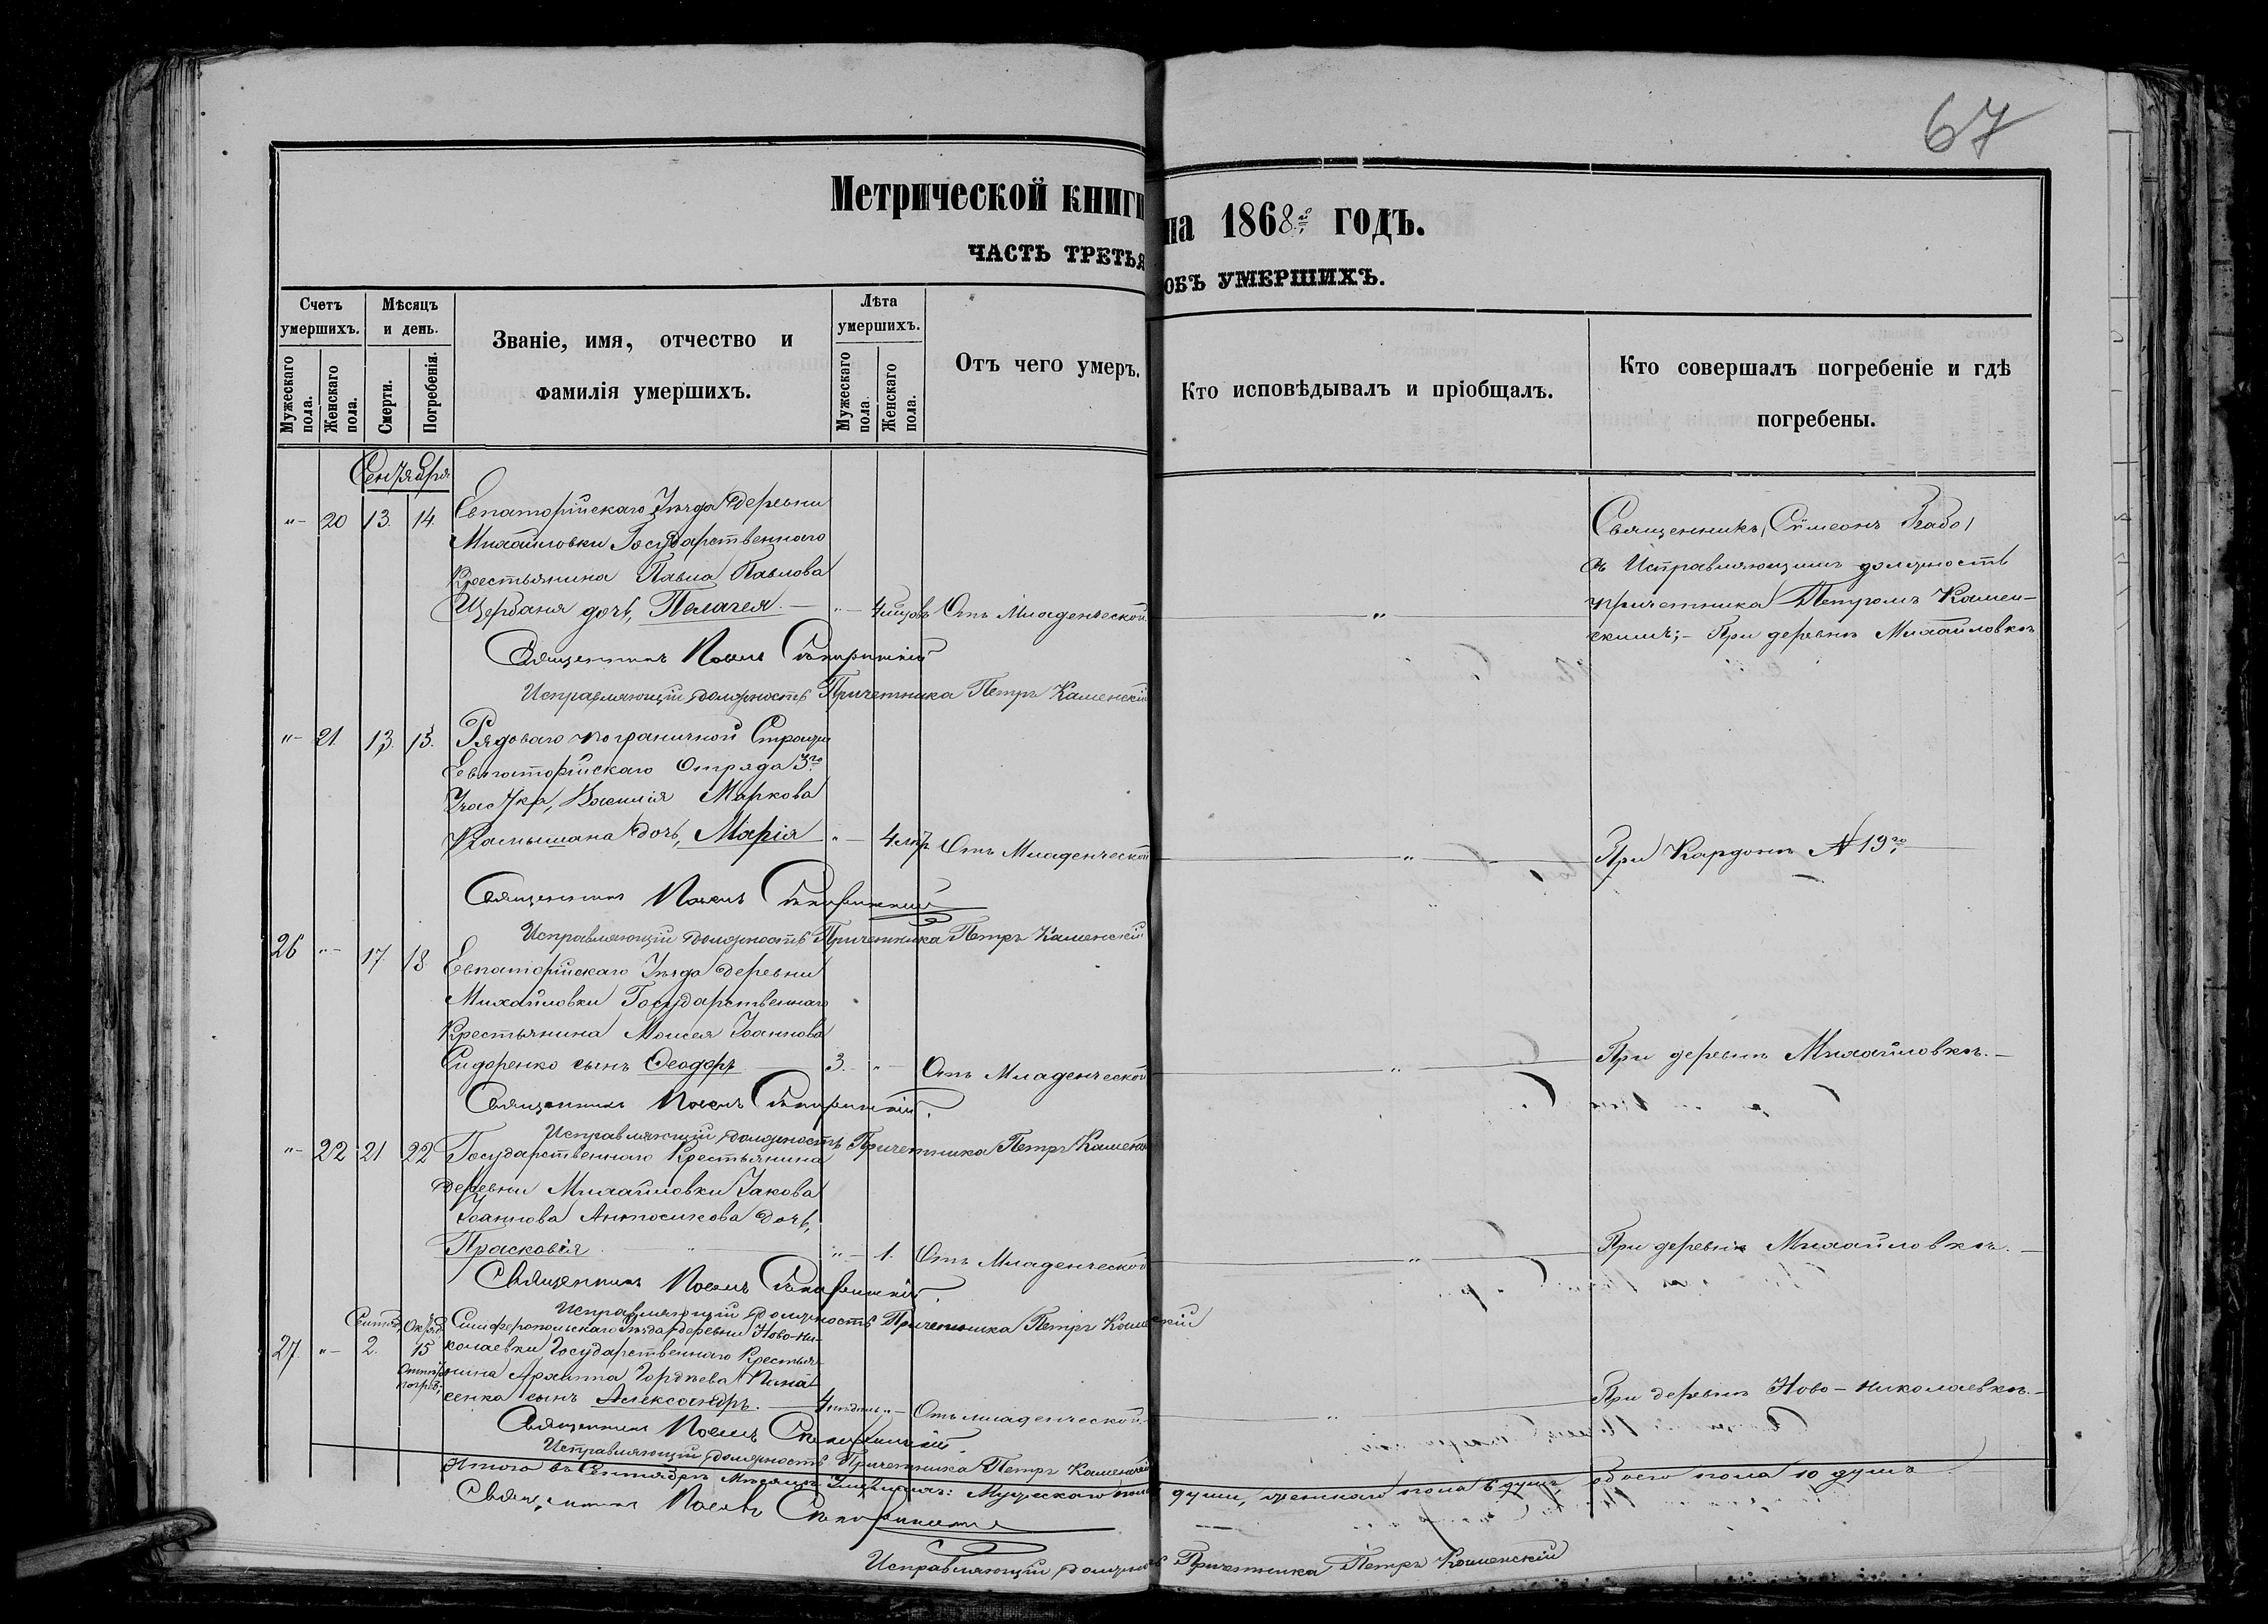 67
Метрической книги на 1868й годъ.
ЧАСТЬ ТРЕТЬЯ ОБЪ УМЕРШИХЪ.
Счетъ умершихъ.
Мужескаго пола.
Женскаго пола.
Мѣсяцъ и день.
Смерти.
Погребенія.
Званіе, имя, отчество и
фамилія умершихъ.
Лѣта умершихъ.
Мужескаго пола.
Женскаго пола.
Отъ чего умеръ.
Кто исповѣдывалъ и пріобщалъ.
Кто совершалъ погребеніе и гдѣ
погребены.
Сентября
"– 20 13. 14. Евпаторійскаго Уѣзда деревни
Михайловки Государственнаго
Крестьянина Павла Павлова
Щербаня дочь, Пелагея. – "– 4 Отъ Младенческой "
Священникъ Сѵмеонъ
съ Исправляющимъ должность
причетника Петромъ Камен-
скимъ; – При деревнѣ Михайловкѣ
Священникъ
Исправляющій должность Причетника Петръ Каменскій
"– 21. 13. 15. Рядоваго пограничной Стражи
Евпаторійскаго Отряда 3го
Участка, Василія Маркова
Камышана дочь, Марія "– 4 Отъ Младенческой " При Кардонѣ № 19го
Священникъ
Исправляющій должность Причетника Петръ Каменскій
26 "– 17. 18. Евпаторійскаго Уѣзда деревни
Михайловки Государственнаго
Крестьянина Моисея Іоаннова
Сидоренко сынъ Ѳеодоръ 3. "– Отъ Младенческой " При деревнѣ Михайловкѣ. –
Священникъ
Исправляющій должность Причетника Петръ Каменскій
"– 22 21 22 Государственнаго Крестьянина
деревни Михайловки Іакова
Іоаннова Антосикова дочь,
Прасковія " "– 1. Отъ Младенческой " При деревнѣ Михайловкѣ. –
Священникъ
Исправляющій должность Причетника Петръ Каменскій
27. "– 2. 15 Симферопольскаго Уѣзда деревни Ново-Ни-
колаевки Государственнаго Крестья-
нина Архиппа Гордѣева Пана-
сенка сынъ Александръ. – 4 недѣль "– Отъ младенческой " При деревнѣ Ново-Николаевкѣ. –
Священникъ
Исправляющій должность Причетника Петръ Каменскій
Итого въ Сентябрѣ Мѣсяцѣ Умершихъ: Мужескаго пола души, женскаго пола 6 душъ, обоего пола 10 душъ
Священникъ
Исправляющій должность Причетника Петръ Каменскій